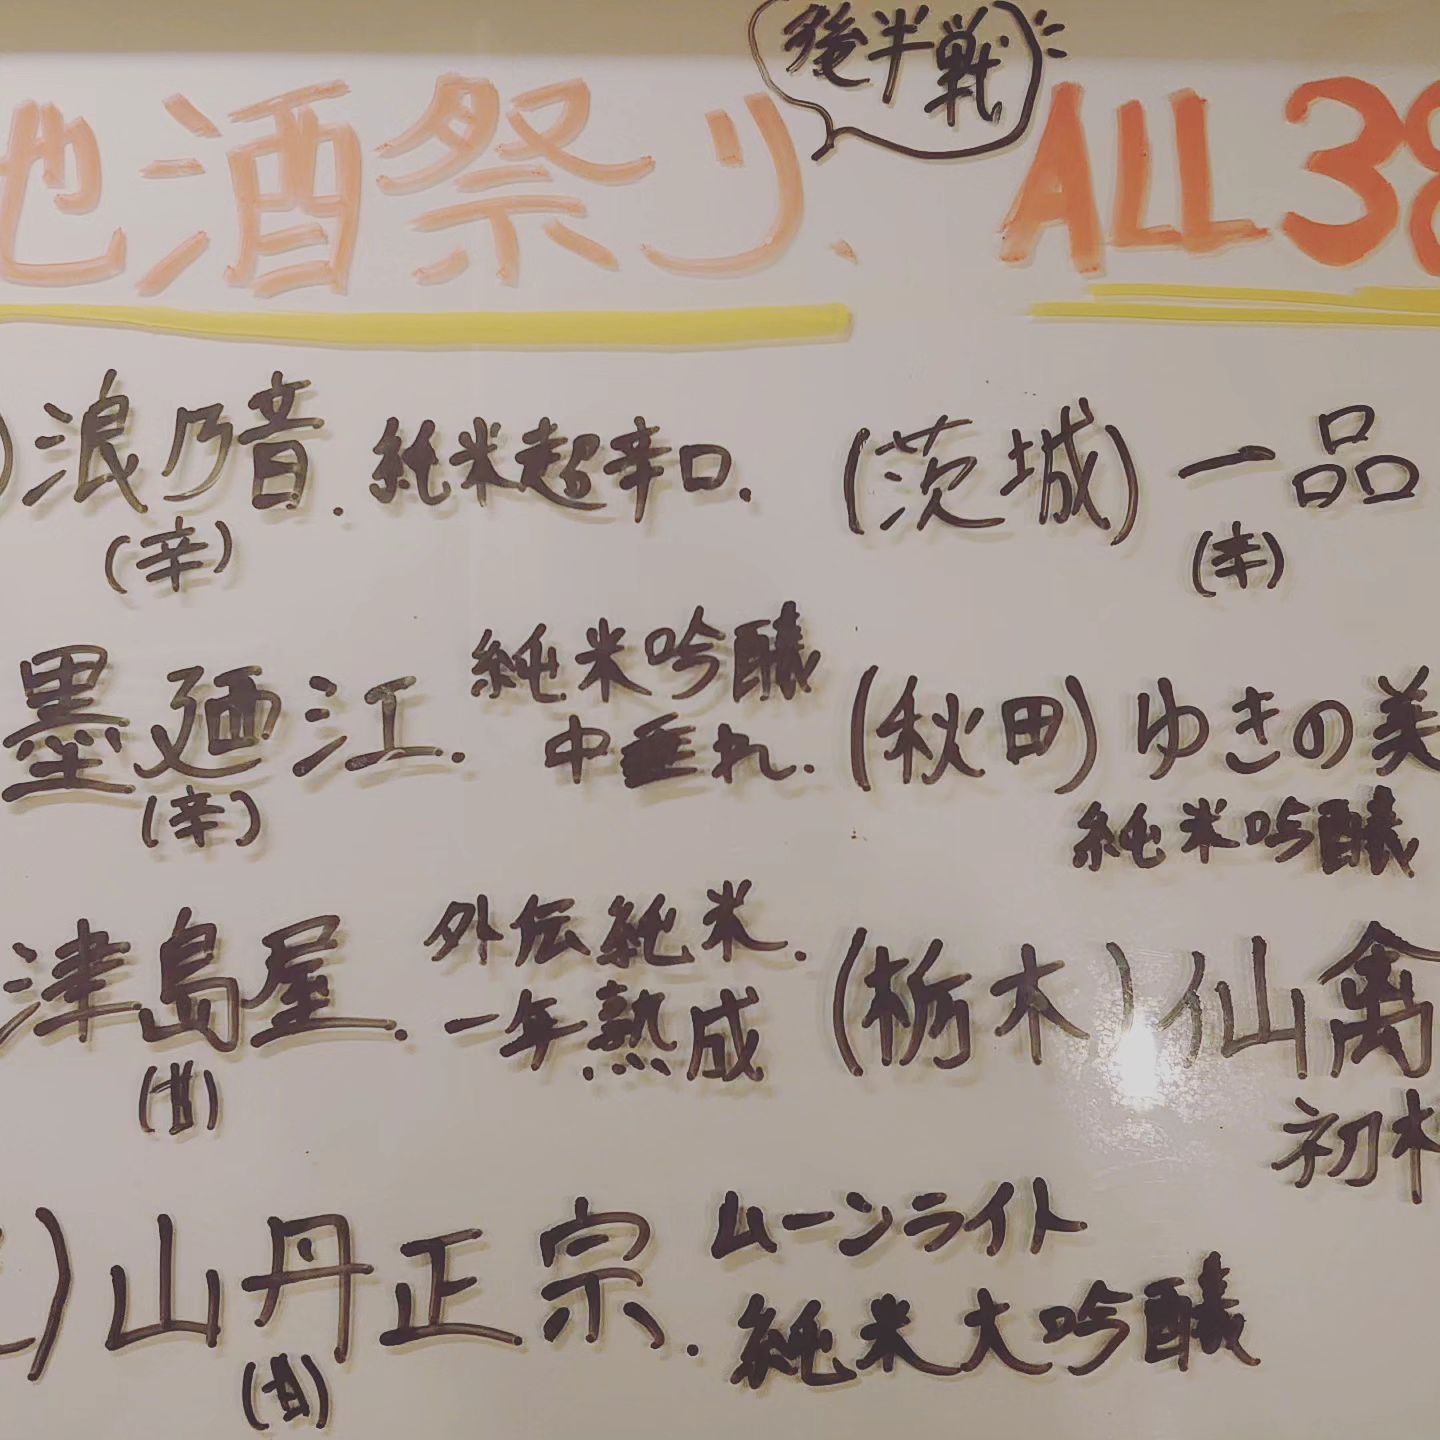 後半戦
地酒祭り、 ALL 38
) 浪乃音. 純米超辛口.
(辛)
(茨城) 一品
(辛)
墨廼江. 純米吟醸
中垂れ.
(辛)
(秋田) ゆきの美
純米吟醸
津島屋. 外伝純米.
一年熟成
(甘)
(栃木) 仙禽
初
) 山丹正宗. ムーンライト
純米大吟醸
(甘)